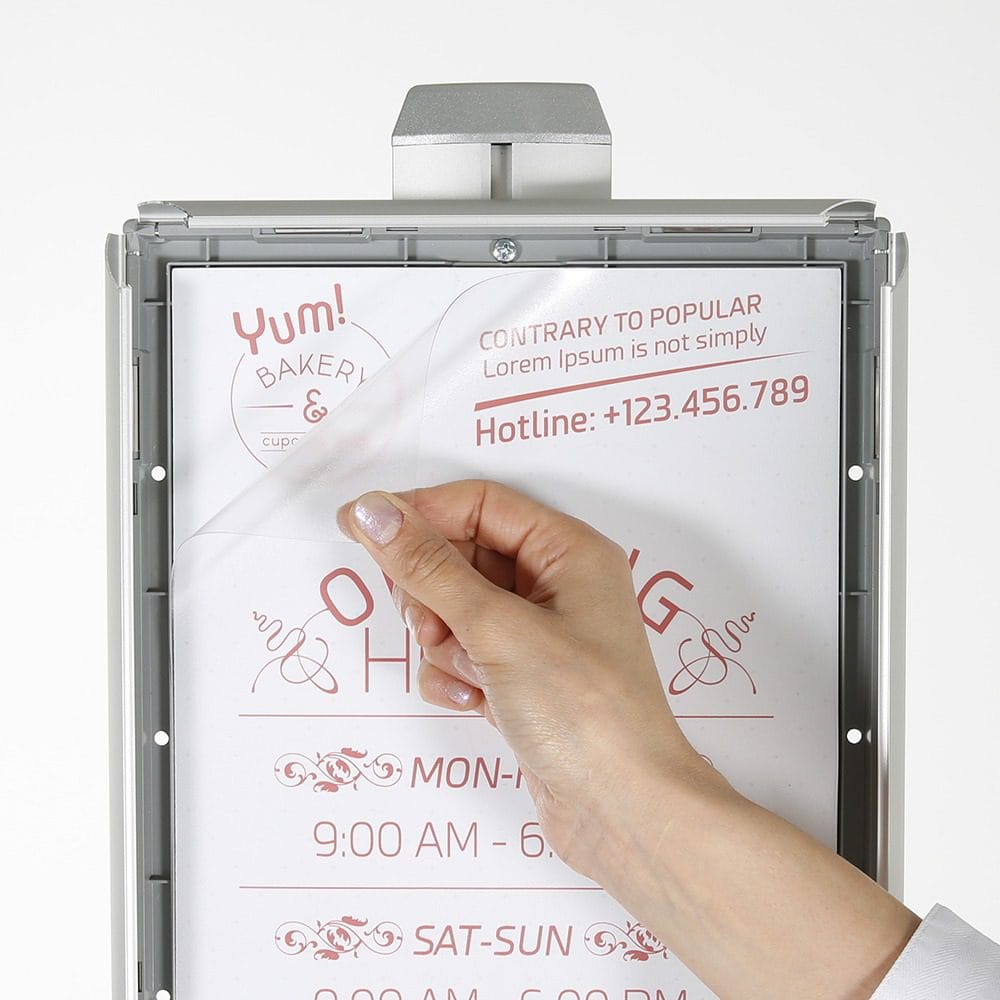 Yum!
BAKERY
&
CONTRARY TO POPULAR
Lorem Ipsum is not simply
Hotline: +123.456.789
MON-
9:00 AM - 6:
SAT-SUN
9:00 AM - 6:00 PM